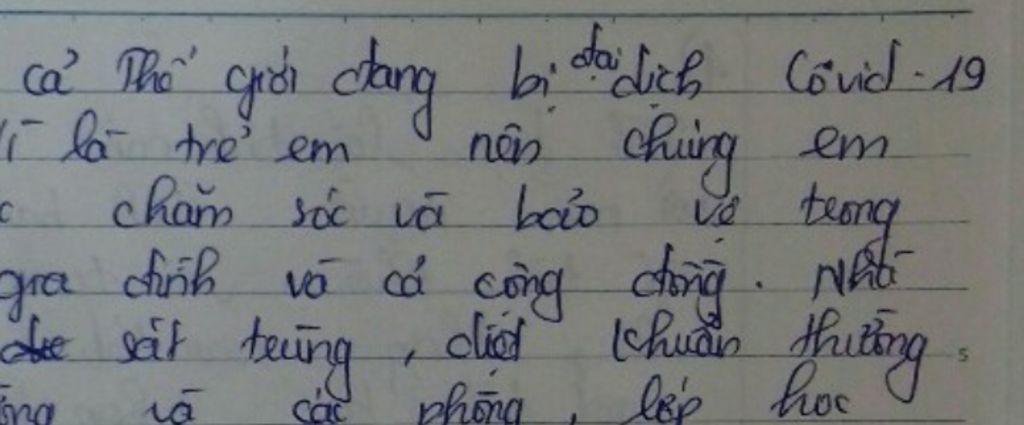 cả Thế giới đang bị đại dịch Covid-19
vì là trẻ em nên chúng em
chăm sóc và bảo vệ trong
gia đình và cả cộng đồng. Nhà
sát trùng, diệt khuẩn thường
và các phòng, lớp học